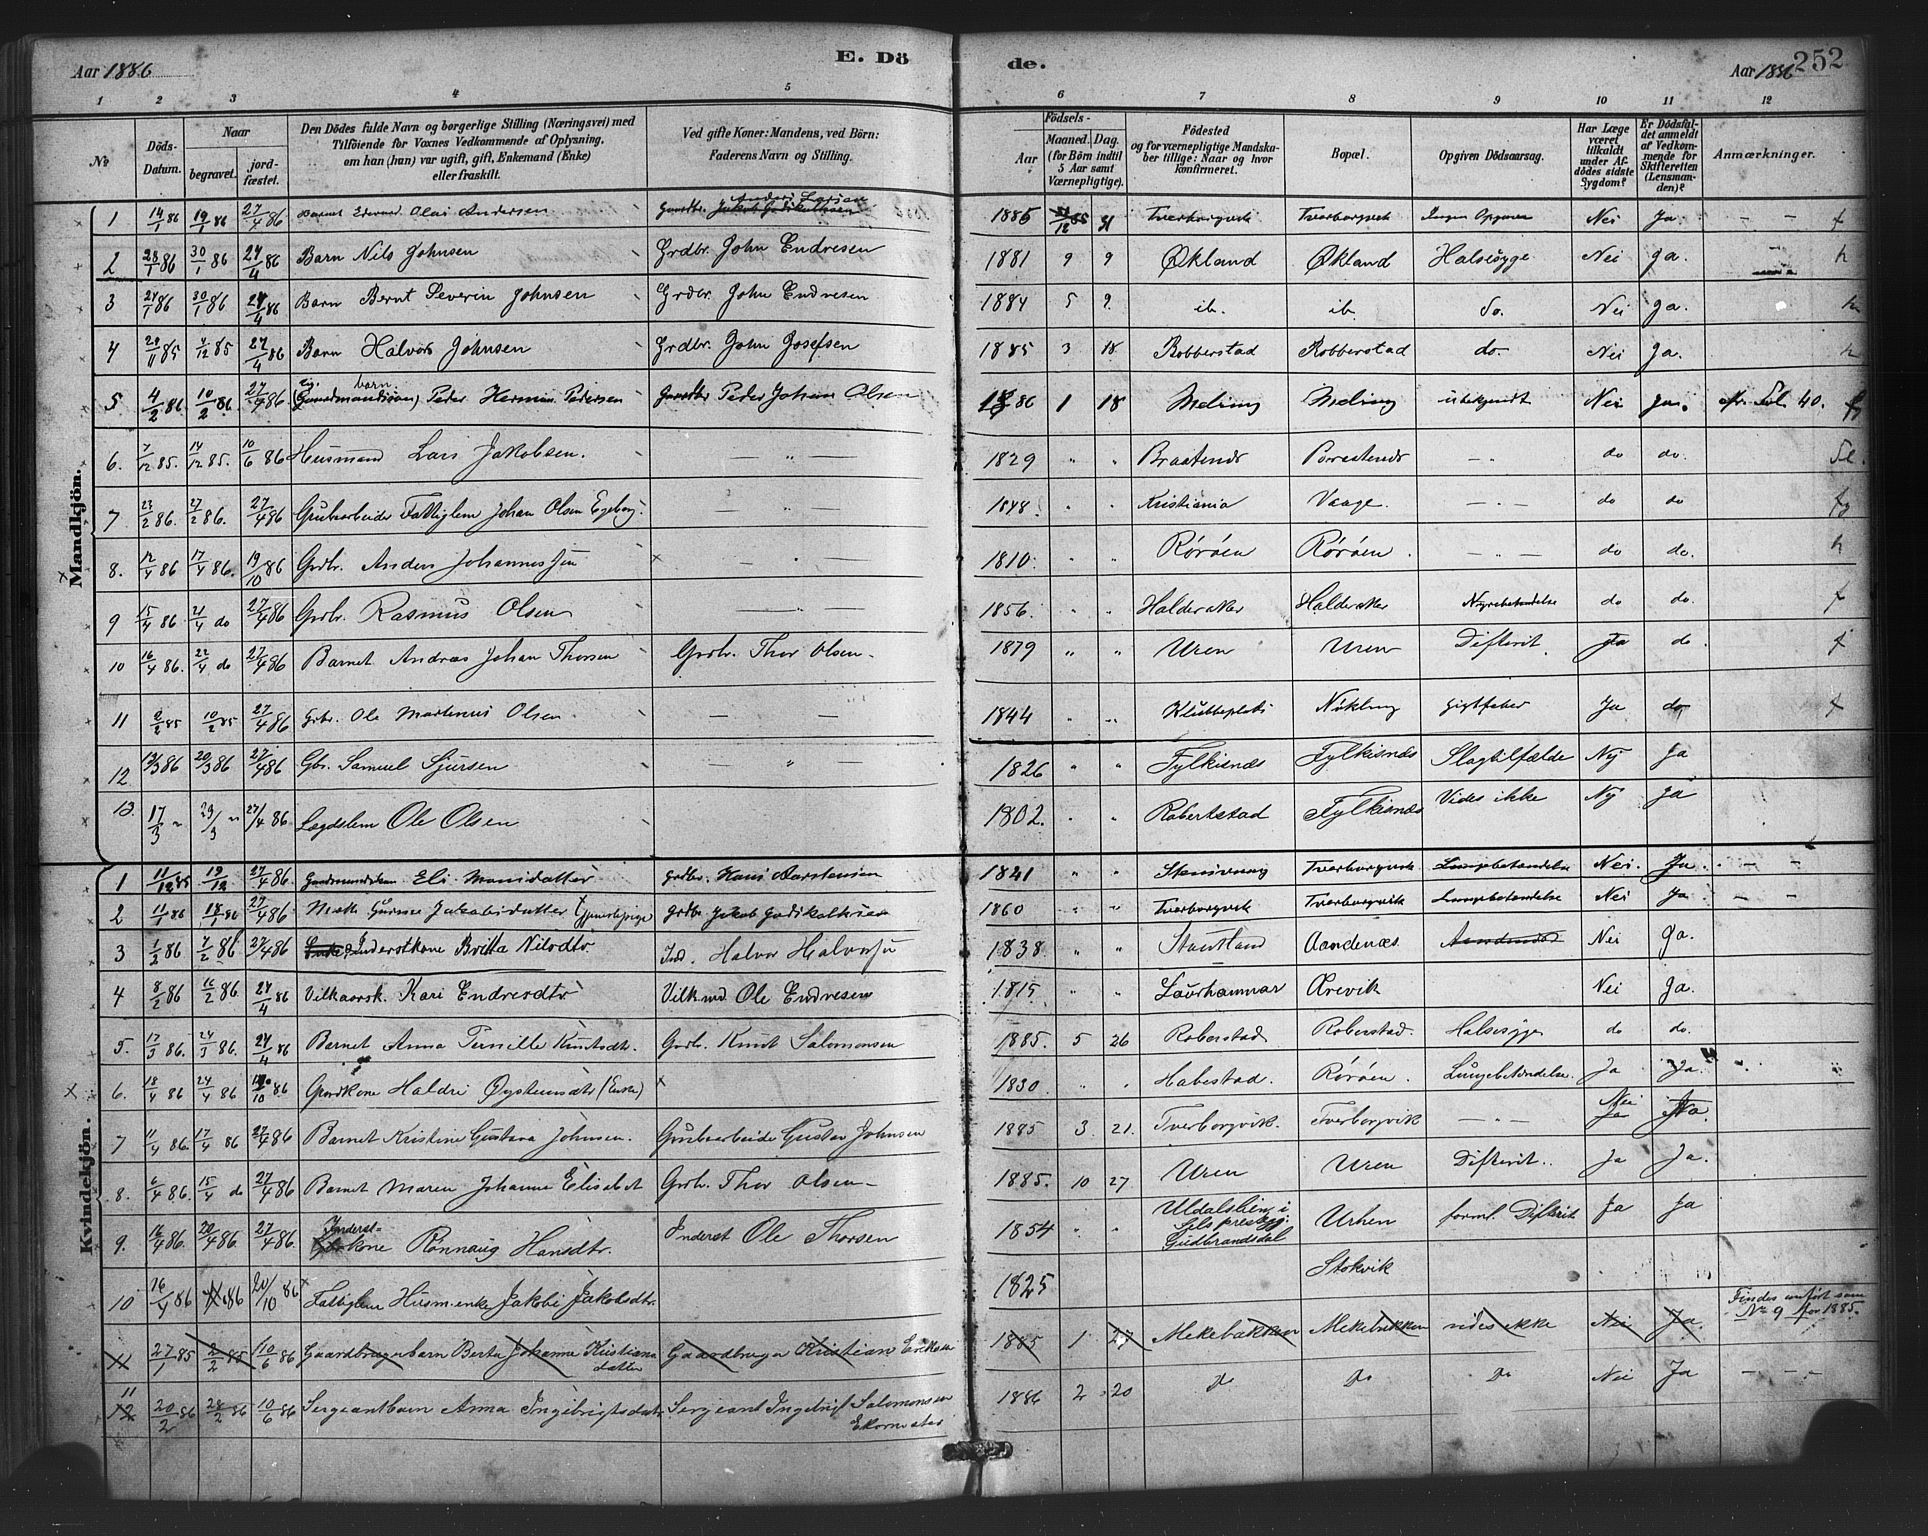 Aar 1886
E. Dö
de.
Aar 1886
252
1 2 3 4 5 6 7 8 9 10 11 12
No
Döds-Datum.
Naar
begravet.
jord-fæstet.
Den Dödes fulde Navn og borgerlige Stilling (Næringsvei) med
Tilföiende for Voxnes Vedkommende af Oplysning,
om han (hun) var ugift, gift, Enkemand (Enke)
eller fraskilt.
Ved gifte Koner: Mandens, ved Börn:
Faderens Navn og Stilling.
Födsels-
Aar
Maaned. Dag.
(for Börn indtil
5 Aar samt
Værnepligtige).
Födested
og for værnepligtige Mandska-
ber tillige: Naar og hvor
konfirmeret.
Bopæl.
Opgiven Dödsaarsag.
Har Læge
været
tilkaldt
under Af-
dödes sidste
Sygdom?
Er Dödsfal-
det anmeldt
af Vedkom-
mende for
Skifteretten
(Lensman-
den)?
Anmærkninger.
Mandkjön.
1 14/1 86 19/1 86 27/4 86 Barnet Edvard Olai Andersen Gaardbr. Anders Larsen 1885 31/12 85 Tverborgvik Tverborgvik Ingen Opgave Nei Ja - - f
2 28/1 86 30/1 86 27/4 86 Barn Nils Johnsen Grdbr. John Endresen 1881 9 9 Økland Økland Halssyge Nei Ja. h
3 27/1 86 30/1 86 27/4 86 Barn Bernt Severin Johnsen Grdbr. John Endresen 1884 5 9 ib. ib. do. Nei Ja. h
4 20/11 85 4/12 85 27/4 86 Barn Halvor Johnsen Grdbr. John Josefsen 1885 3 18 Robberstad Robberstad do. Nei Ja. h
5 4/2 86 10/2 86 27/4 86 barn Peder Herman Pedersen Gaardbr Peder Johan Olsen 1886 1 18 Meling Meling ubekjendt Nei Ja. 40.
6. 7/12 85. 14/12 85. 10/6 86 Husmand Lars Jakobsen. — " — 1829 " " Braatende Braatende — " do do.
7 23/2 86. 27/2 86. 27/4 86 Grubearbeide Fattiglem Johan Olsen Egeberg. — " — 1848 " " Kristiania Vaage. — " — do do
8. 12/4 86 17/4 86. 19/10 86 Grdbr. Anders Johannessen — " — 1810. " " Rørøen Rørøen. — " — do do. h
9 15/4 86 21/4 do 27/4 86 Grbr. Rasmus Olsen — — 1856. " " Halderaker Halderaker Nyrebetændelse do do. f
10 16/4 86. 22/4 do 27/4 86 Barnet Andreas Johan Thorsen Grdbr. Thor Olsen. 1879 " " Uren Uren Difterit. Ja do f
11 2/2 85 10/2 85 27/4 86 Grbr. Ole Martinus Olsen. — — 1844 " " Klubbeplads Nikling gigtfeber Ja do f
12 13/3 86 20/3 86 27/4 86 Gbr. Samuel Sjursen — " — 1826 " " Fylkisnæs Fylkisnæs Slagtilfælde Nej Ja
13. 17/3 " 29/3 " 27/4 86 Lægdslem Ole Olsen 1802. " " Robertstad Fylkisnæs Vides ikke Nej Ja
Kvindekjön.
1 11/12 85 19/12 27/4 86 Gaardmandskone Eli Monsdatter Grdbr. Hans Aarstensen 1821 " " Tverborgvik Lungebetændelse Nei. Ja. - -
2 11/1 86 18/1 86 27/4 86 Jakobsdatter (Tjenestepige) Grdbr Jakob Godskalksen 1860 " " Tverborgvik Tverborgvik Lungebetændelse Nei Ja - -
3 1/2 86 7/2 86 27/4 86 Enke Inderstkone Britta Nilsdtr Ind. Halvor Halvorsen 1838 " " Stautland Aandenæs Aandenød Nei Ja.
4 8/2 86 16/2 86 27/4 86 Vilkaarsk. Kari Endresdtr Vilk.md Ole Endresen 1815 " " Laurhammar Ørevik Nei Ja.
5. 17/3 86. 24/3 86. 27/4 86 Barnet Anna Pernille Knutsdtr. Grdbr. Knut Salomonsen 1885. 5 26 Roberstad Roberstad. Halssyge do do.
6. 18/4 86 24/4 86 19/10 86 Gardkone Haldri Øysteinsdtr (Enke) 1830. " Habestad. Rørøen. Lungebetændelse. Ja Ja.
7 11/4 86. 17/4 86 27/4 86 Barnet Kristine Gustava Johnsen. Grubearbeide Gustav Johnsen 1885 3 21. Tverborgvik. Tverborgvik — " — Nei Ja Ja.
8. 6/4 86. 15/4 do 27/4 86 Barnet Maren Johanne Elisabet Grdbr. Thor Olsen- 1885. 10 27 Uren Uren Difterit. Ja Ja.
9. 16/4 86. 20/4 86. 27/4 86. Inderst-kone Rønnaug Hansdtr. Inderst Ole Thorsen 1854 " " Uldalslien i Fåbergs prestegj. Gudbrandsdal Urhen forml. Difterit Ja Ja
10 16/4 86 86 20/10 86 Fattiglem Husm.enke Jakobi Jakobsdtr. 1825 Stokvik
11 27/1 85 2/2 85 10/6 86 Gaardbrugerbarn Berta Johanna Kristiansdatter Gaardbruger Kristian Eriksen 1885 1 27 Mekebakken Mekebakken vides ikke Nei Ja Findes anført som No 9 for 1885.
11 12 20/2 86 28/2 86 10/6 86 Sergeantbarn Anna Ingebrigtsdatter Sergeant Ingebrigt Salomonsen Ekornestad 1886 2 20 Do Do Do Nei Ja - - -